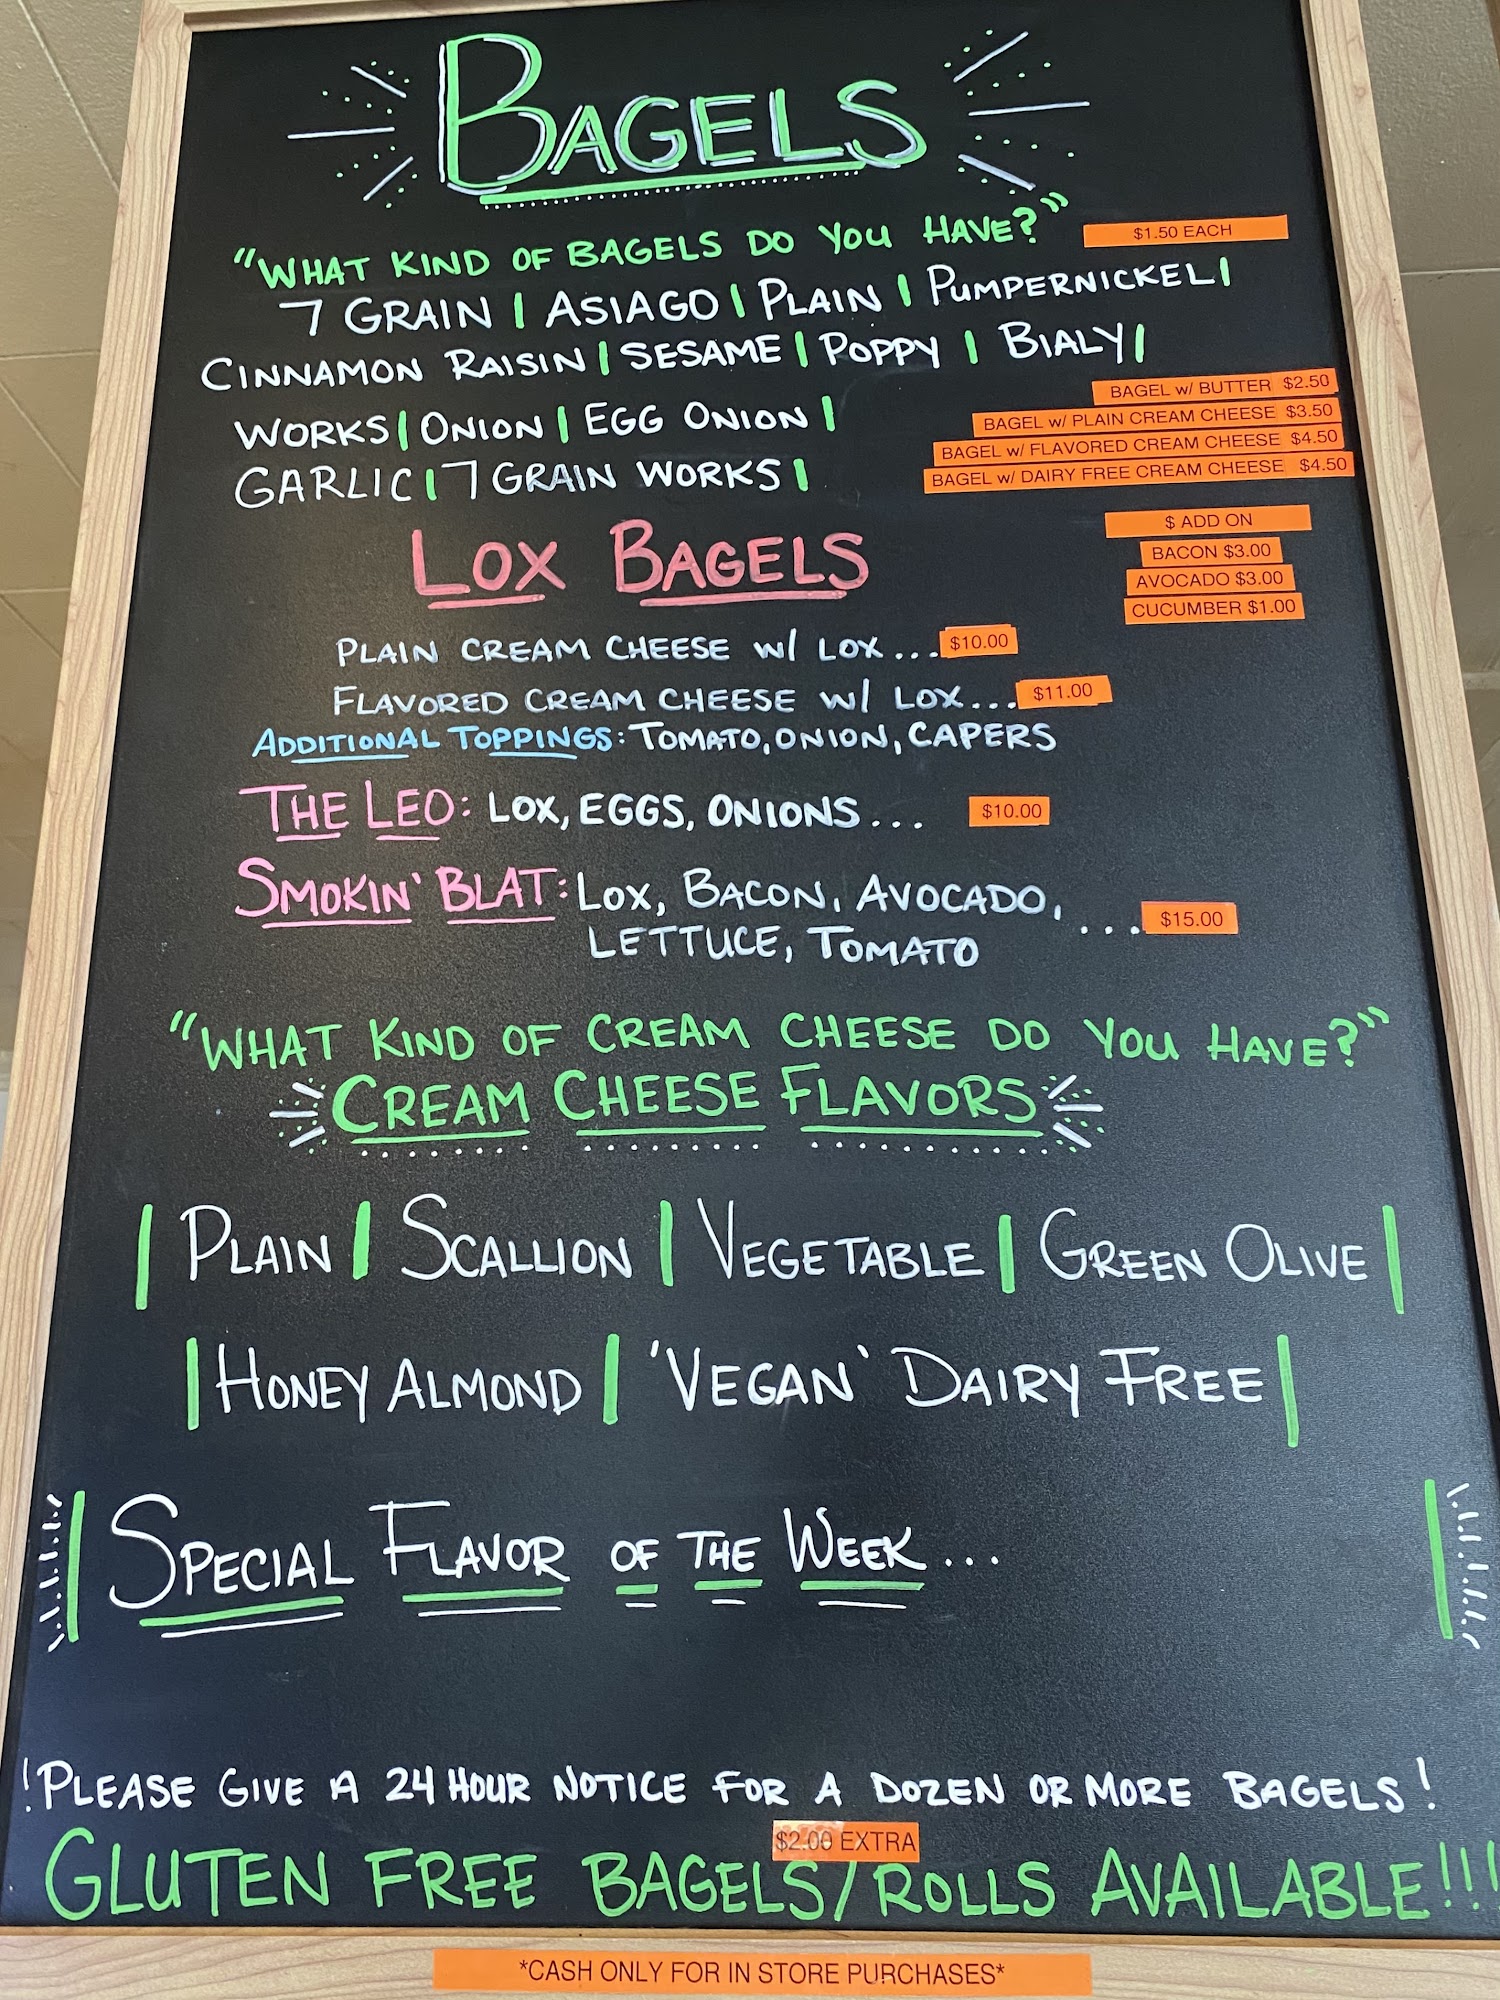 BAGELS
"WHAT KIND OF BAGELS DO YOU HAVE?" $1.50 EACH
7 GRAIN | ASIAGO | PLAIN | PUMPERNICKEL |
CINNAMON RAISIN | SESAME | POPPY | BIALY |
BAGEL w/ BUTTER $2.50
WORKS | ONION | EGG ONION | BAGEL w/ PLAIN CREAM CHEESE $3.50
BAGEL w/ FLAVORED CREAM CHEESE $4.50
GARLIC | 7 GRAIN WORKS | BAGEL w/ DAIRY FREE CREAM CHEESE $4.50
LOX BAGELS
$ ADD ON
BACON $3.00
AVOCADO $3.00
CUCUMBER $1.00
PLAIN CREAM CHEESE w/ LOX... $10.00
FLAVORED CREAM CHEESE w/ LOX... $11.00
ADDITIONAL TOPPINGS: TOMATO, ONION, CAPERS
THE LEO: LOX, EGGS, ONIONS... $10.00
SMOKIN' BLAT: LOX, BACON, AVOCADO,
LETTUCE, TOMATO ... $15.00
"WHAT KIND OF CREAM CHEESE DO YOU HAVE?"
CREAM CHEESE FLAVORS
| PLAIN | SCALLION | VEGETABLE | GREEN OLIVE |
| HONEY ALMOND | 'VEGAN' DAIRY FREE |
SPECIAL FLAVOR OF THE WEEK...
!PLEASE GIVE A 24 HOUR NOTICE FOR A DOZEN OR MORE BAGELS!
$2.00 EXTRA
GLUTEN FREE BAGELS/ROLLS AVAILABLE!!!
*CASH ONLY FOR IN STORE PURCHASES*